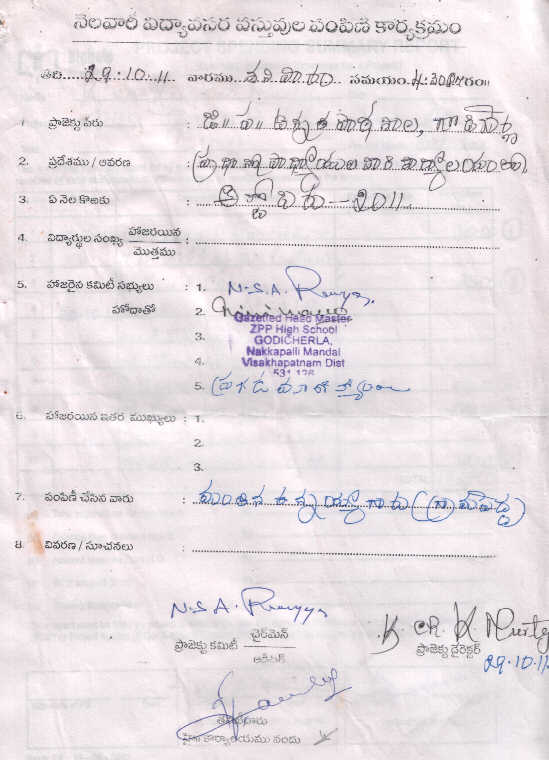 నెలవారీ విద్యావసర వస్తువుల పంపిణీ కార్యక్రమం
తేది..... 29.10.11 వారము... శనివారం సమయం. 4.30PM గం॥
1. ప్రాజెక్టు పేరు : జి॥ ప॥ ఉన్నత పాఠశాల, గొడిచెర్ల
2. ప్రదేశము / ఆవరణ : ప్రధానోపాధ్యాయుల వారి కార్యాలయంలో
3. ఏ నెల కొఱకు : అక్టోబర్ - 2011
4. విద్యార్థుల సంఖ్య హాజరయిన / మొత్తము :
5. హాజరైన కమిటీ సభ్యులు : 1. N.S.A.
హోదాతో 2.
Gazetted Head Master
ZPP High School
3. GODICHERLA,
Nakkapalli Mandal
4. Visakhapatnam Dist
531 126
5.
6. హాజరయిన ఇతర ముఖ్యులు : 1.
2.
3.
7. పంపిణీ చేసిన వారు :
8. వివరణ / సూచనలు :
N.S.A.
ప్రాజెక్టు కమిటీ చైర్‌మెన్
K. Ch. K Murty
ప్రాజెక్టు డైరెక్టర్
29.10.11
కార్యాలయము నందు